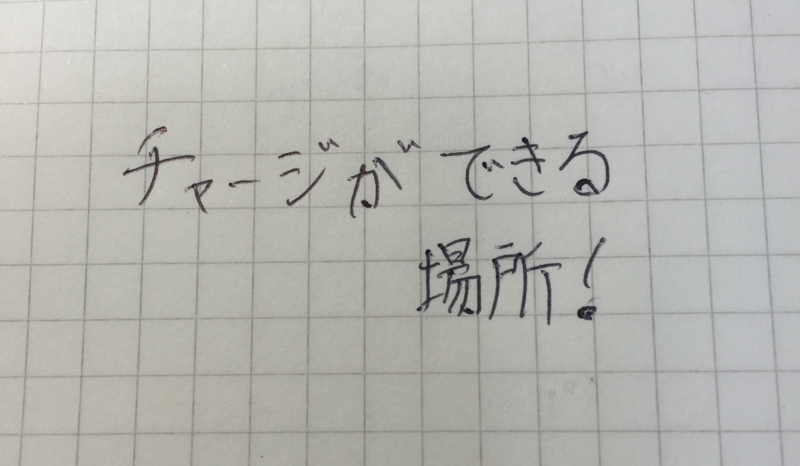 チャージができる
場所！